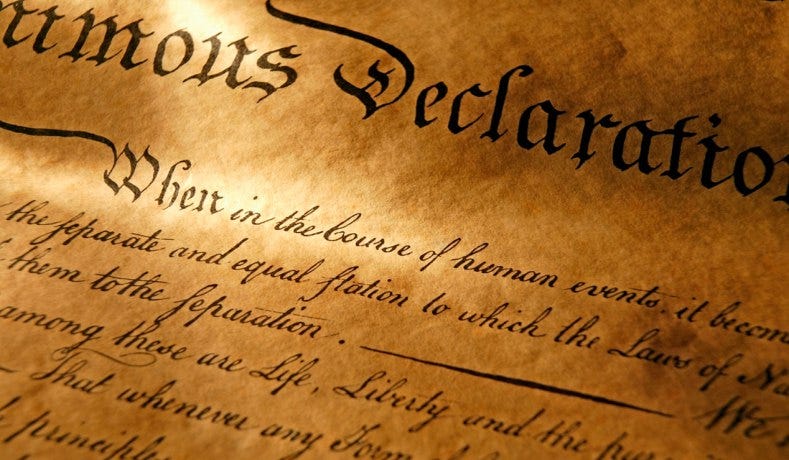 nimous Declaration
When in the Course of human events, it becom
the ſeparate and equal ſtation to which the Laws of Na
them to the ſeparation. — We
among theſe are Life, Liberty and the pur
— That whenever any Form of
principles